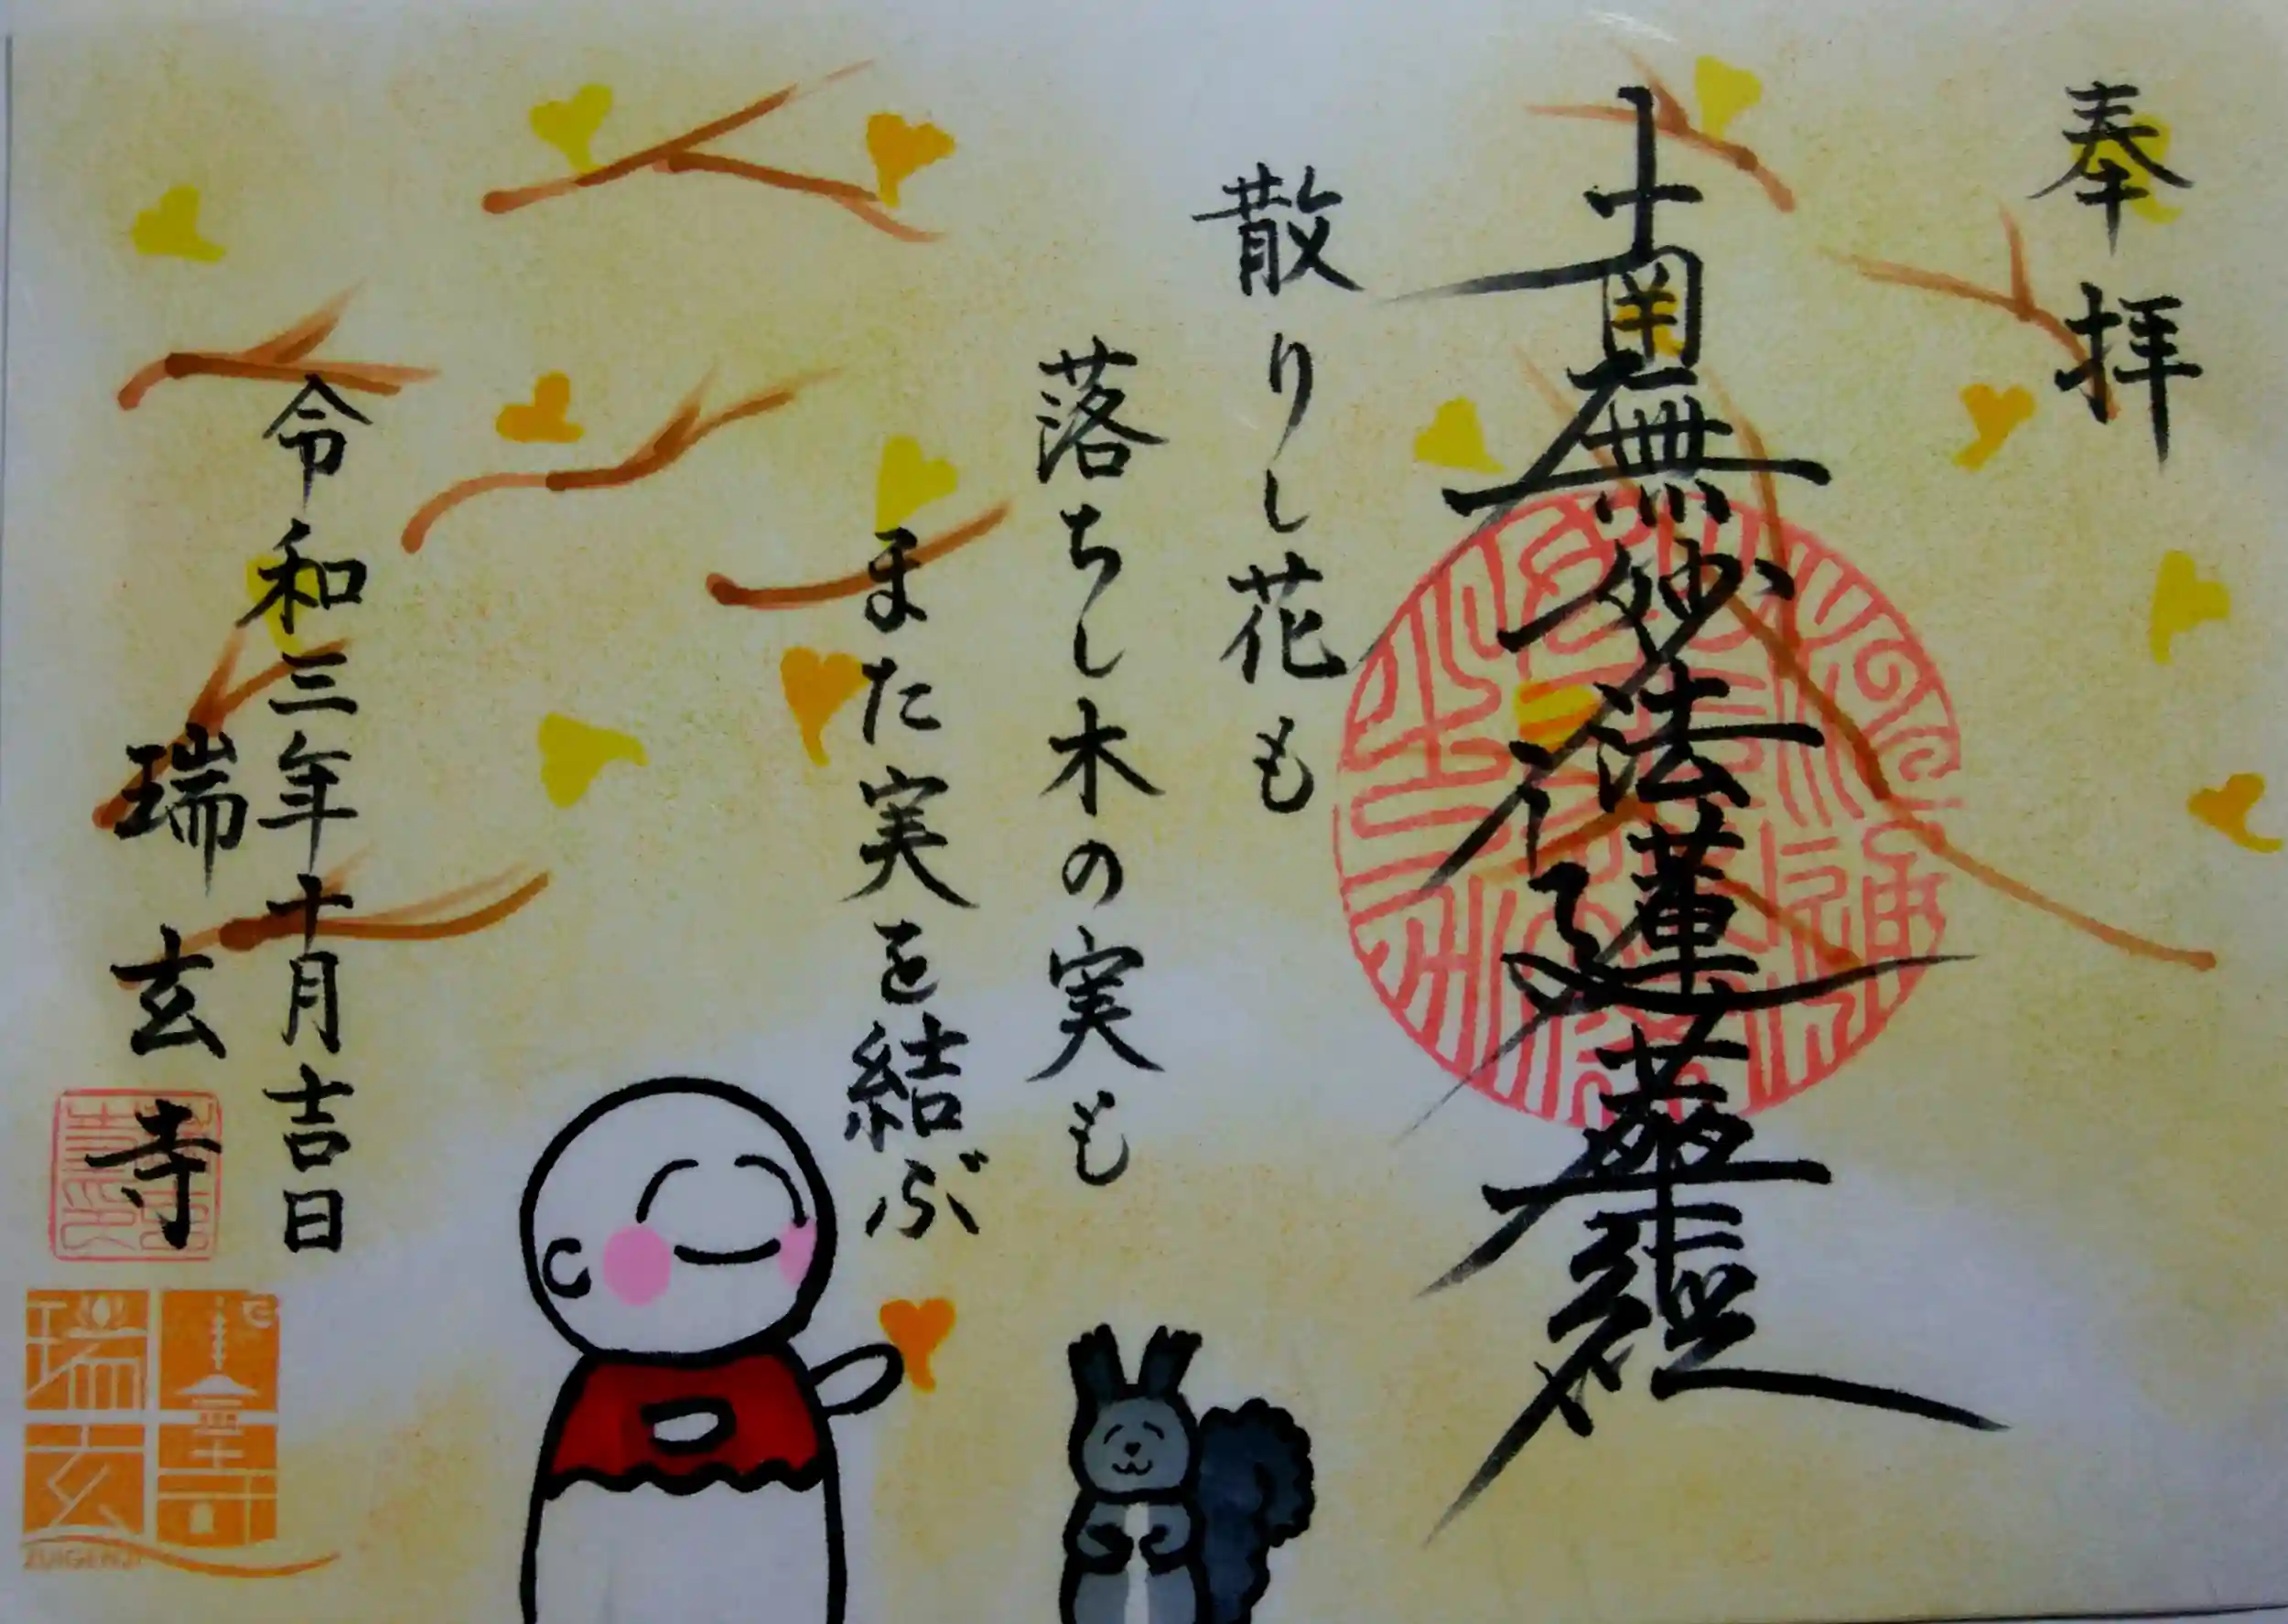 奉拝
南無妙法蓮華経
散りし花も
落ちし木の実も
また実を結ぶ
令和三年十月吉日
瑞玄寺
瑞玄寺
ZUIGENJI